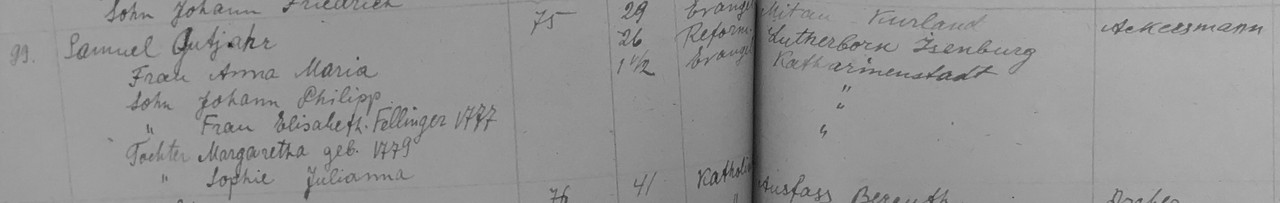 Sohn Johann Friedrich
99. Samuel Gutjahr 75 29 Evangel Mitau Kurland Ackersmann
Frau Anna Maria 26 Reform. Lutherborn Isenburg
Sohn Johann Philipp 1 1/2 Evangel Katharinenstadt
" Frau Elisabeth Fellinger 1777 "
Tochter Margaretha geb. 1779 "
" Sophie Julianna "
76 41 Katholi